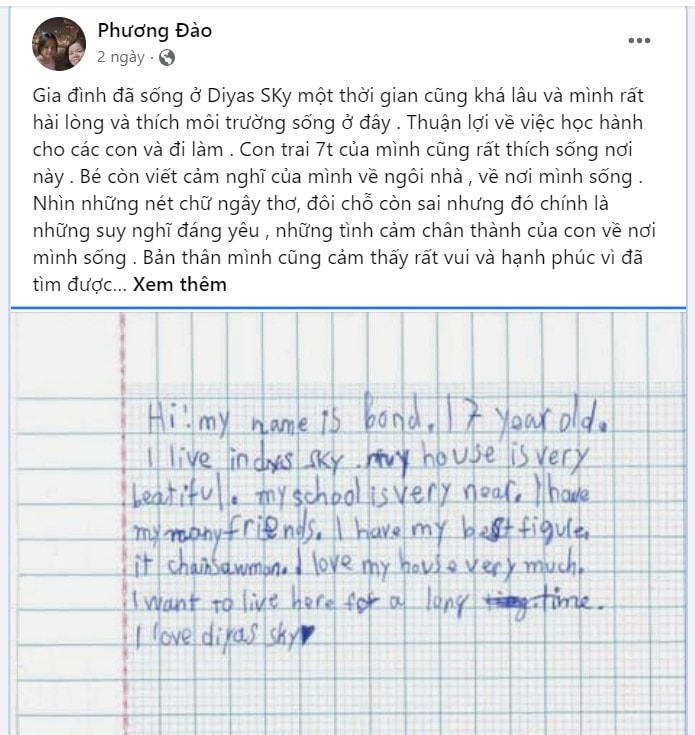 Phương Đào
2 ngày ·
Gia đình đã sống ở Diyas SKy một thời gian cũng khá lâu và mình rất
hài lòng và thích môi trường sống ở đây . Thuận lợi về việc học hành
cho các con và đi làm . Con trai 7t của mình cũng rất thích sống nơi
này . Bé còn viết cảm nghĩ của mình về ngôi nhà , về nơi mình sống .
Nhìn những nét chữ ngây thơ, đôi chỗ còn sai nhưng đó chính là
những suy nghĩ đáng yêu , những tình cảm chân thành của con về nơi
mình sống . Bản thân mình cũng cảm thấy rất vui và hạnh phúc vì đã
tìm được... Xem thêm
Hi! my name is bond. I 7 year old.
I live in SKY. my house is very
beatiful. my school is very near. I have
my many friends. I have my best figule.
it chainsawman. I love my house very much.
I want to live here for a long time.
I love diyas sky♥